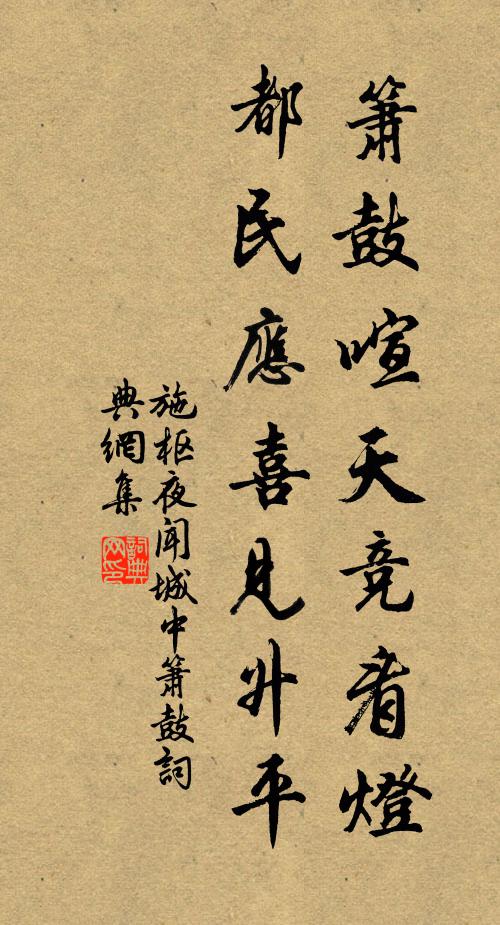 簫鼓喧天竞看燈
都民應喜見升平
施枢夜聞城中簫鼓詞
典網集
詞典
网印